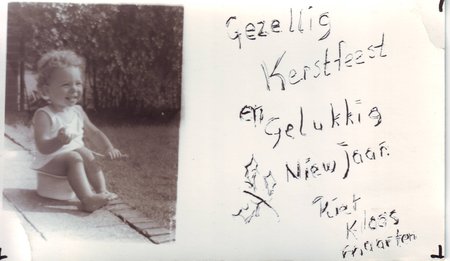 Gezellig
Kerstfeest
en Gelukkig
Niew jaar.
Riet
Klaas
maarten